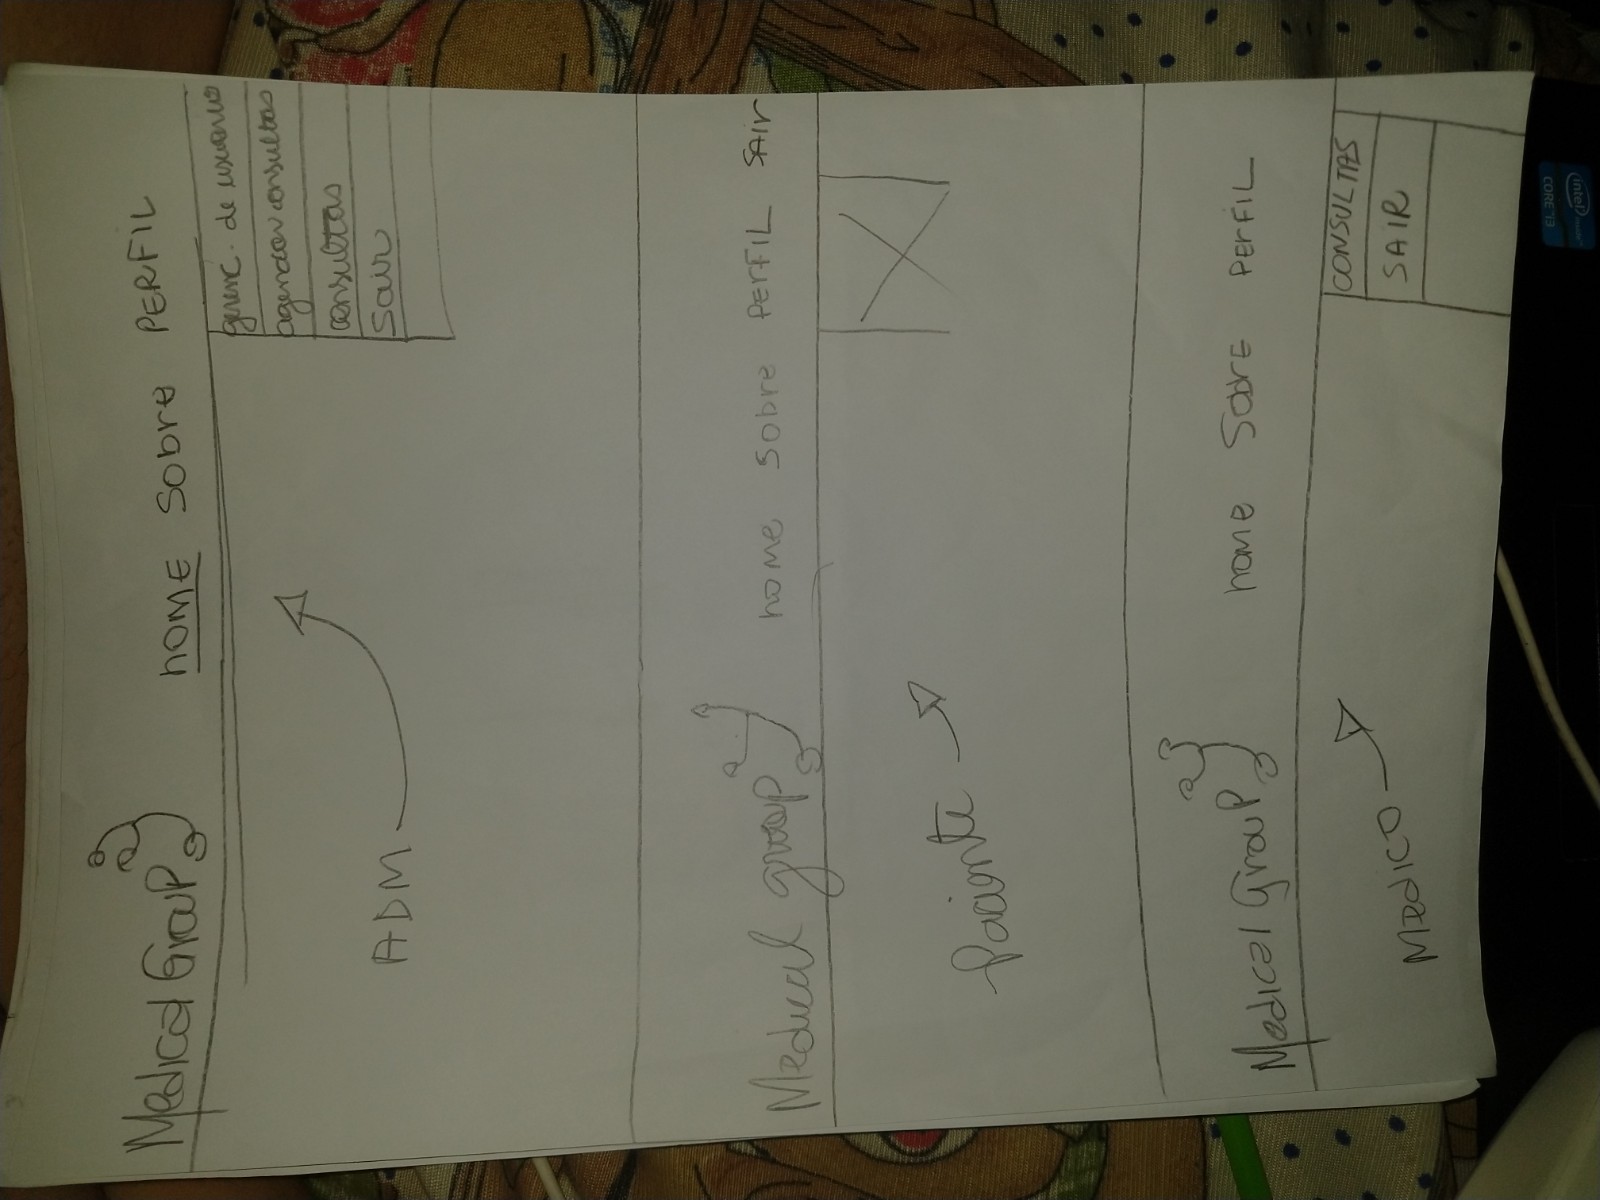 Medical Group home Sobre PERFIL
gerenc. de usuario
agendar consultas
consultas
Sair
ADM
Medical group home Sobre PERFIL SAIr
paciente
Medical Group home Sobre PERFIL
CONSULTAS
SAIR
MEDICO
intel
CORE i3